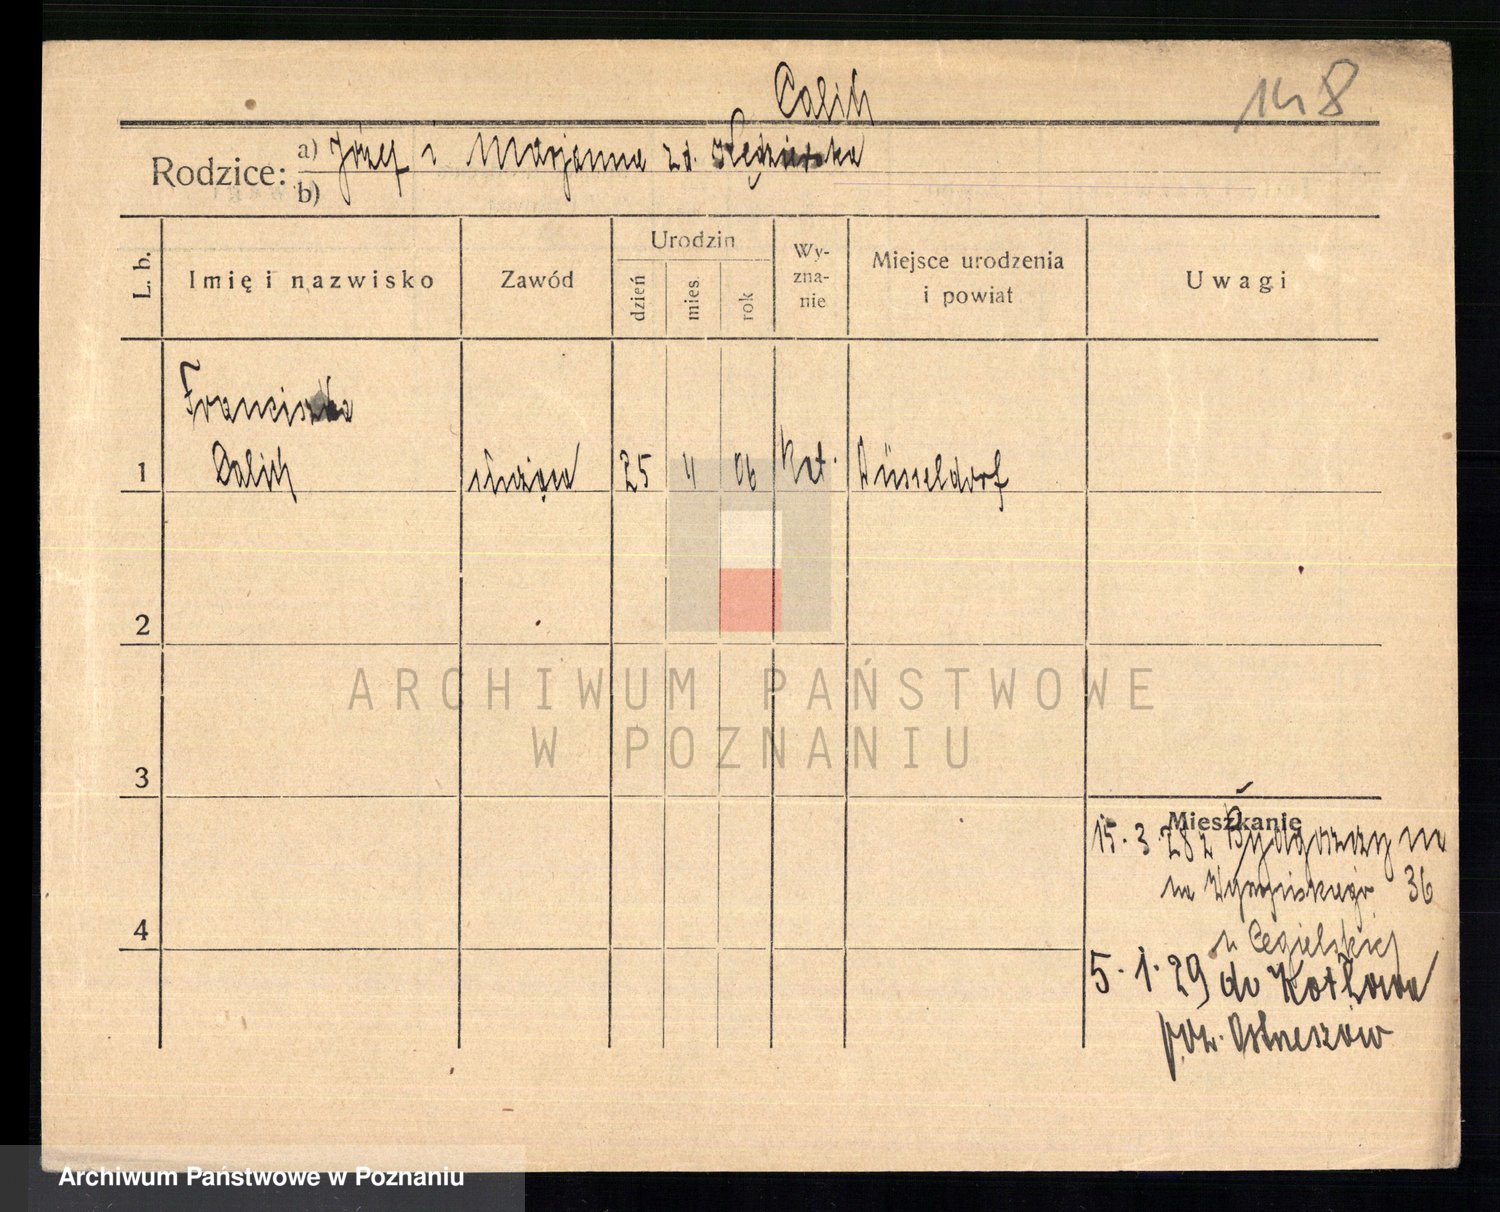 Calik
148
Rodzice: a) Józef i Marjanna zd. Kędzierska
b)
L. b.
Imię i nazwisko
Zawód
Urodzin
dzień
mies.
rok
Wy-
zna-
nie
Miejsce urodzenia
i powiat
Uwagi
Franciszka
1 Calik służąca 25 4 06 kat. Düsseldorf
2
3
4
ARCHIWUM PAŃSTWOWE
W POZNANIU
Mieszkanie
15.3.28 z Bydgoszczy
na 36
u Cegielskiej
5.1.29 do Kotłowa
pow. Ostrzeszów
Archiwum Państwowe w Poznaniu